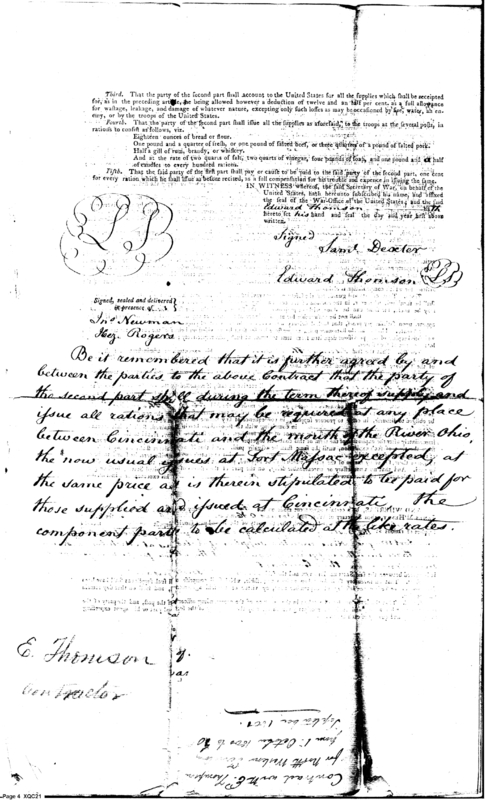 Third. That the party of the second part shall account to the United States for all the supplies which shall be receipted
for, as in the preceding article, he being allowed however a deduction of twelve and an half per cent. as a full allowance
for wastage, leakage, and damage of whatever nature, excepting only such losses as may be occasioned by fire, water, an ene-
my, or by the troops of the United States.
Fourth. That the party of the second part shall issue all the supplies as aforesaid, to the troops at the several posts, in
rations to consist as follows, viz.
Eighteen ounces of bread or flour.
One pound and a quarter of fresh, or one pound of salted beef, or three quarters of a pound of salted pork.
Half a gill of rum, brandy, or whiskey.
And at the rate of two quarts of salt, two quarts of vinegar, four pounds of soap, and one pound and a half
of candles to every hundred rations.
Fifth. That the said party of the first part shall pay or cause to be paid to the said party of the second part, one cent
for every ration which he shall issue as before recited, as a full compensation for his trouble and expence in issuing the same.
IN WITNESS whereof, the said Secretary of War, on behalf of the
United States, hath hereunto subscribed his name, and affixed
the seal of the War-Office of the United States; and the said
Edward Thomson hath
hereto set his hand and seal the day and year first above
written.
Signed
Saml. Dexter
Edward Thomson
Signed, sealed and delivered
in presence of
Jno Newman
Hez. Rogers
Be it remembered that it is further agreed by and
between the parties to the above Contract that the party of
the second part shall during the term thereof supply and
issue all rations that may be required at any place
between Cincinnati and the mouth of the River Ohio
the now usual issues at Fort Massac excepted, at
the same price as is therein stipulated to be paid for
those supplied and issued at Cincinnati the
component parts to be calculated at the like rates.
E. Thomson
Contractor
Contract with E. Thompson
Page 4 XQC21